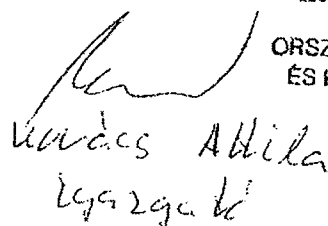 ORSZ
ÉS
Kovács Attila
igazgató